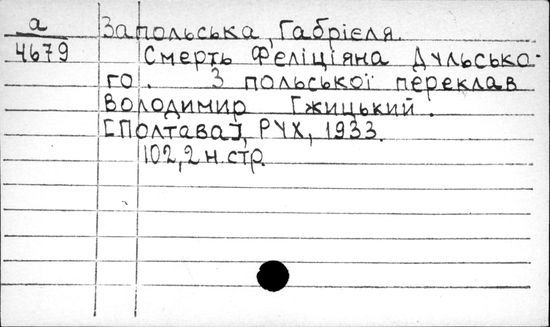 а
4679
Запольська, Габрієля.
Смерть Фєліціяна Дульсько-
го. З польської переклав
Володимир Гжицький.
[Полтава], РУХ, 1933.
102,2 н. стр.